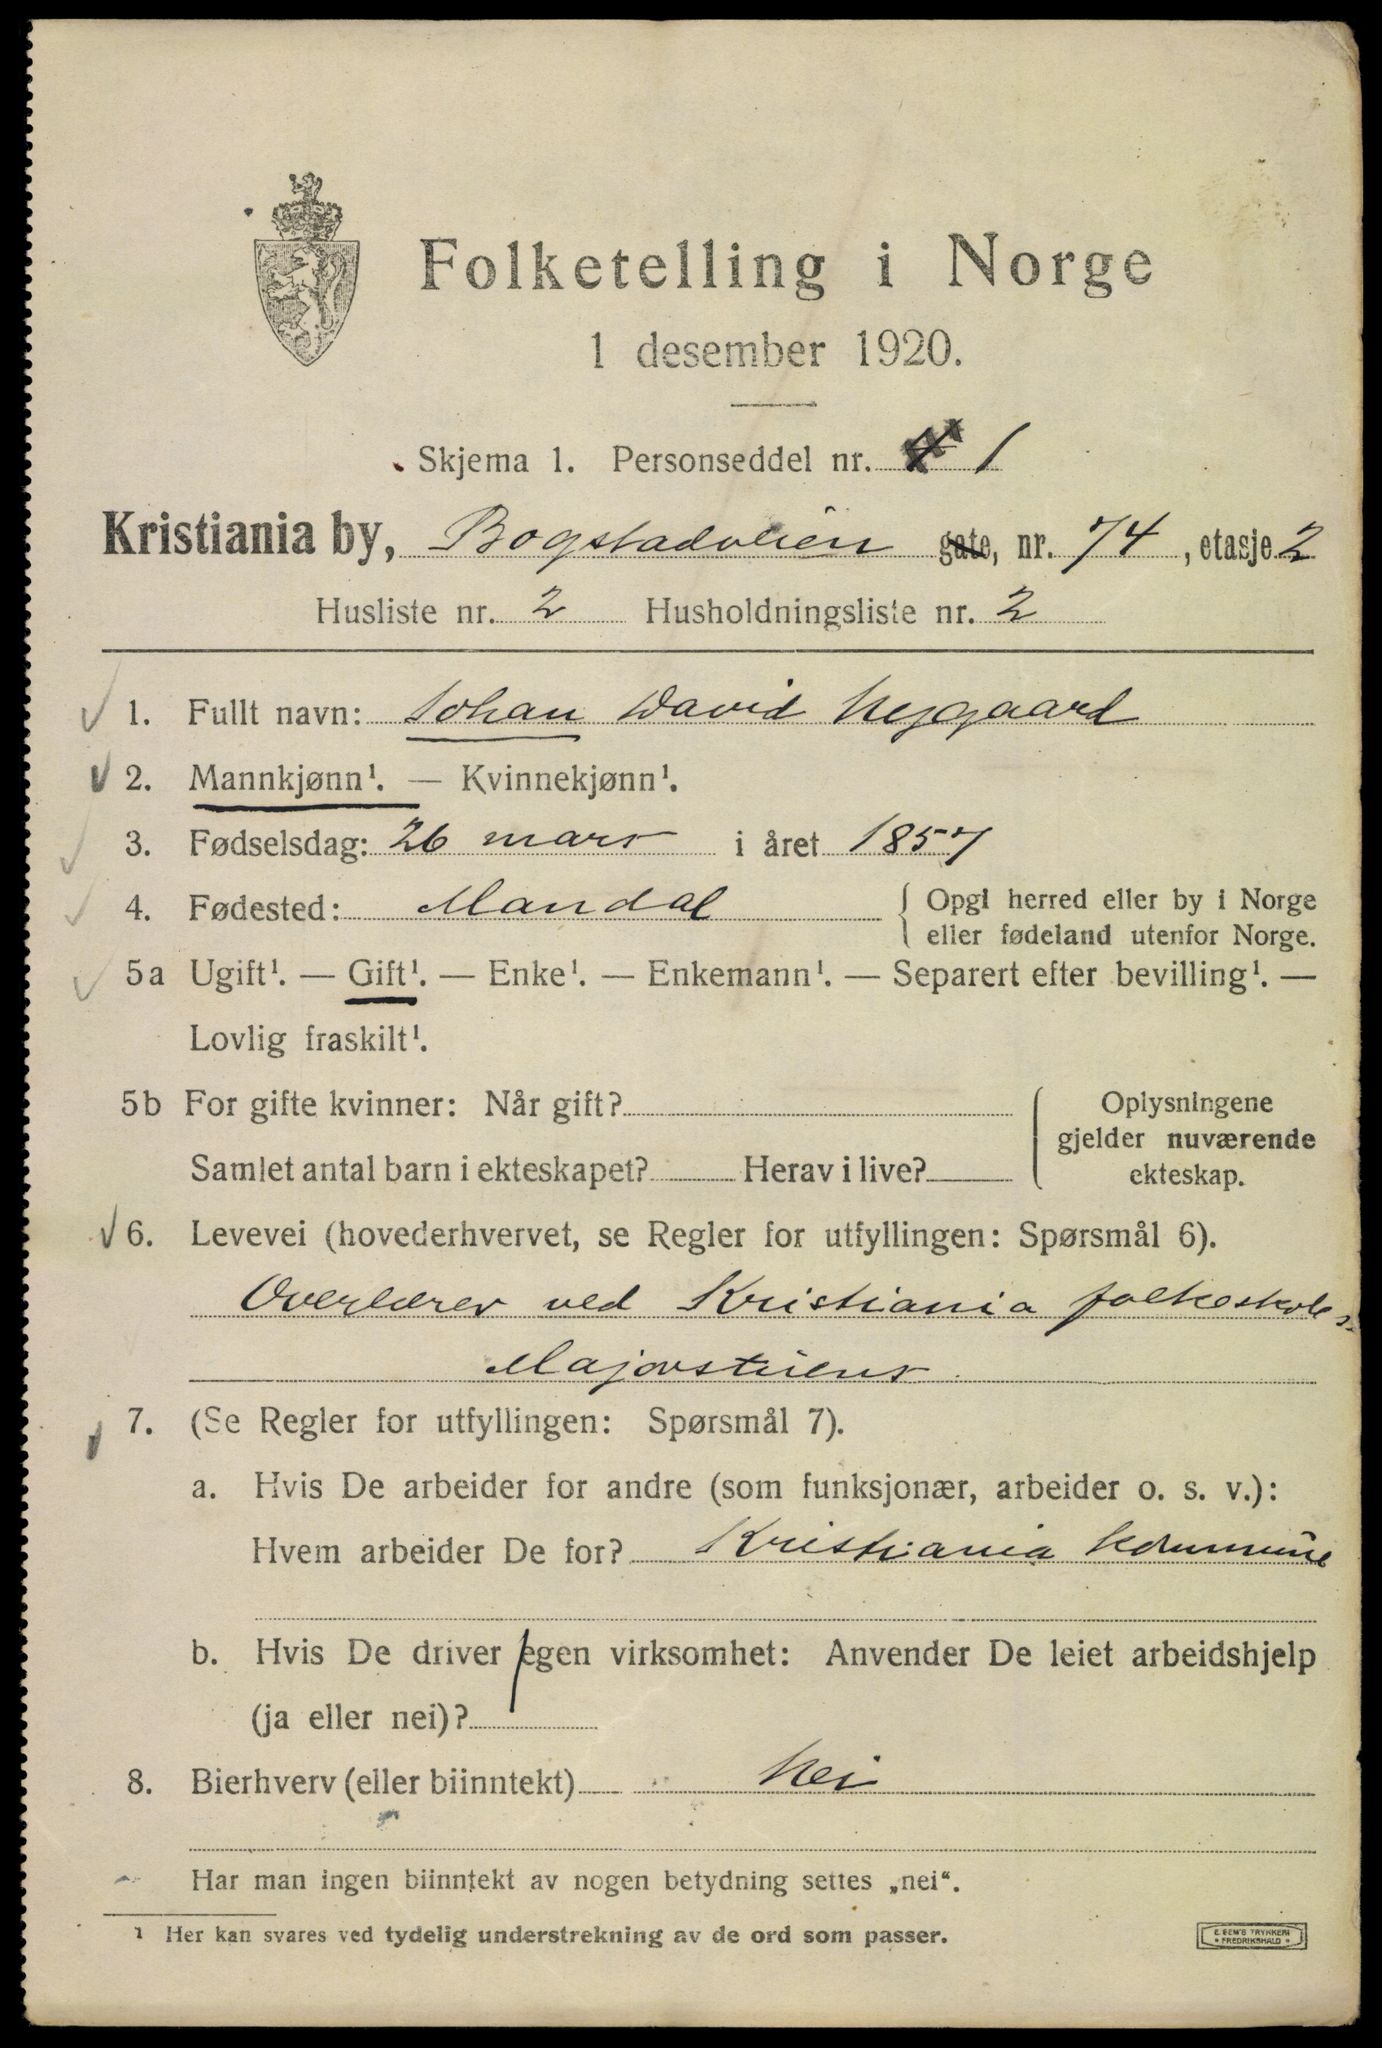 Folketelling i Norge
1 desember 1920.
Skjema 1. Personseddel nr. 1
Kristiania by, Bogstadveien gate, nr. 74, etasje 2
Husliste nr. 2 Husholdningsliste nr. 2
1. Fullt navn: Johan David Nygaard
2. Mannkjønn¹. — Kvinnekjønn¹.
3. Fødselsdag: 26 mars i året 1857
4. Fødested: Mandal { Opgi herred eller by i Norge
eller fødeland utenfor Norge.
5a Ugift¹. — Gift¹. — Enke¹. — Enkemann¹. — Separert efter bevilling¹. —
Lovlig fraskilt¹.
5b For gifte kvinner: Når gift? Oplysningene
gjelder nuværende
Samlet antal barn i ekteskapet? Herav i live? ekteskap.
6. Levevei (hovederhvervet, se Regler for utfyllingen: Spørsmål 6).
Overlærer ved Kristiania folkeskoles
Majorstuens
7. (Se Regler for utfyllingen: Spørsmål 7).
a. Hvis De arbeider for andre (som funksjonær, arbeider o. s. v.):
Hvem arbeider De for? Kristiania kommune
b. Hvis De driver egen virksomhet: Anvender De leiet arbeidshjelp
(ja eller nei)?
8. Bierhverv (eller biinntekt) Nei
Har man ingen biinntekt av nogen betydning settes „nei“.
¹ Her kan svares ved tydelig understrekning av de ord som passer.
E. SEM'S TRYKKERI
• FREDRIKSHALD •